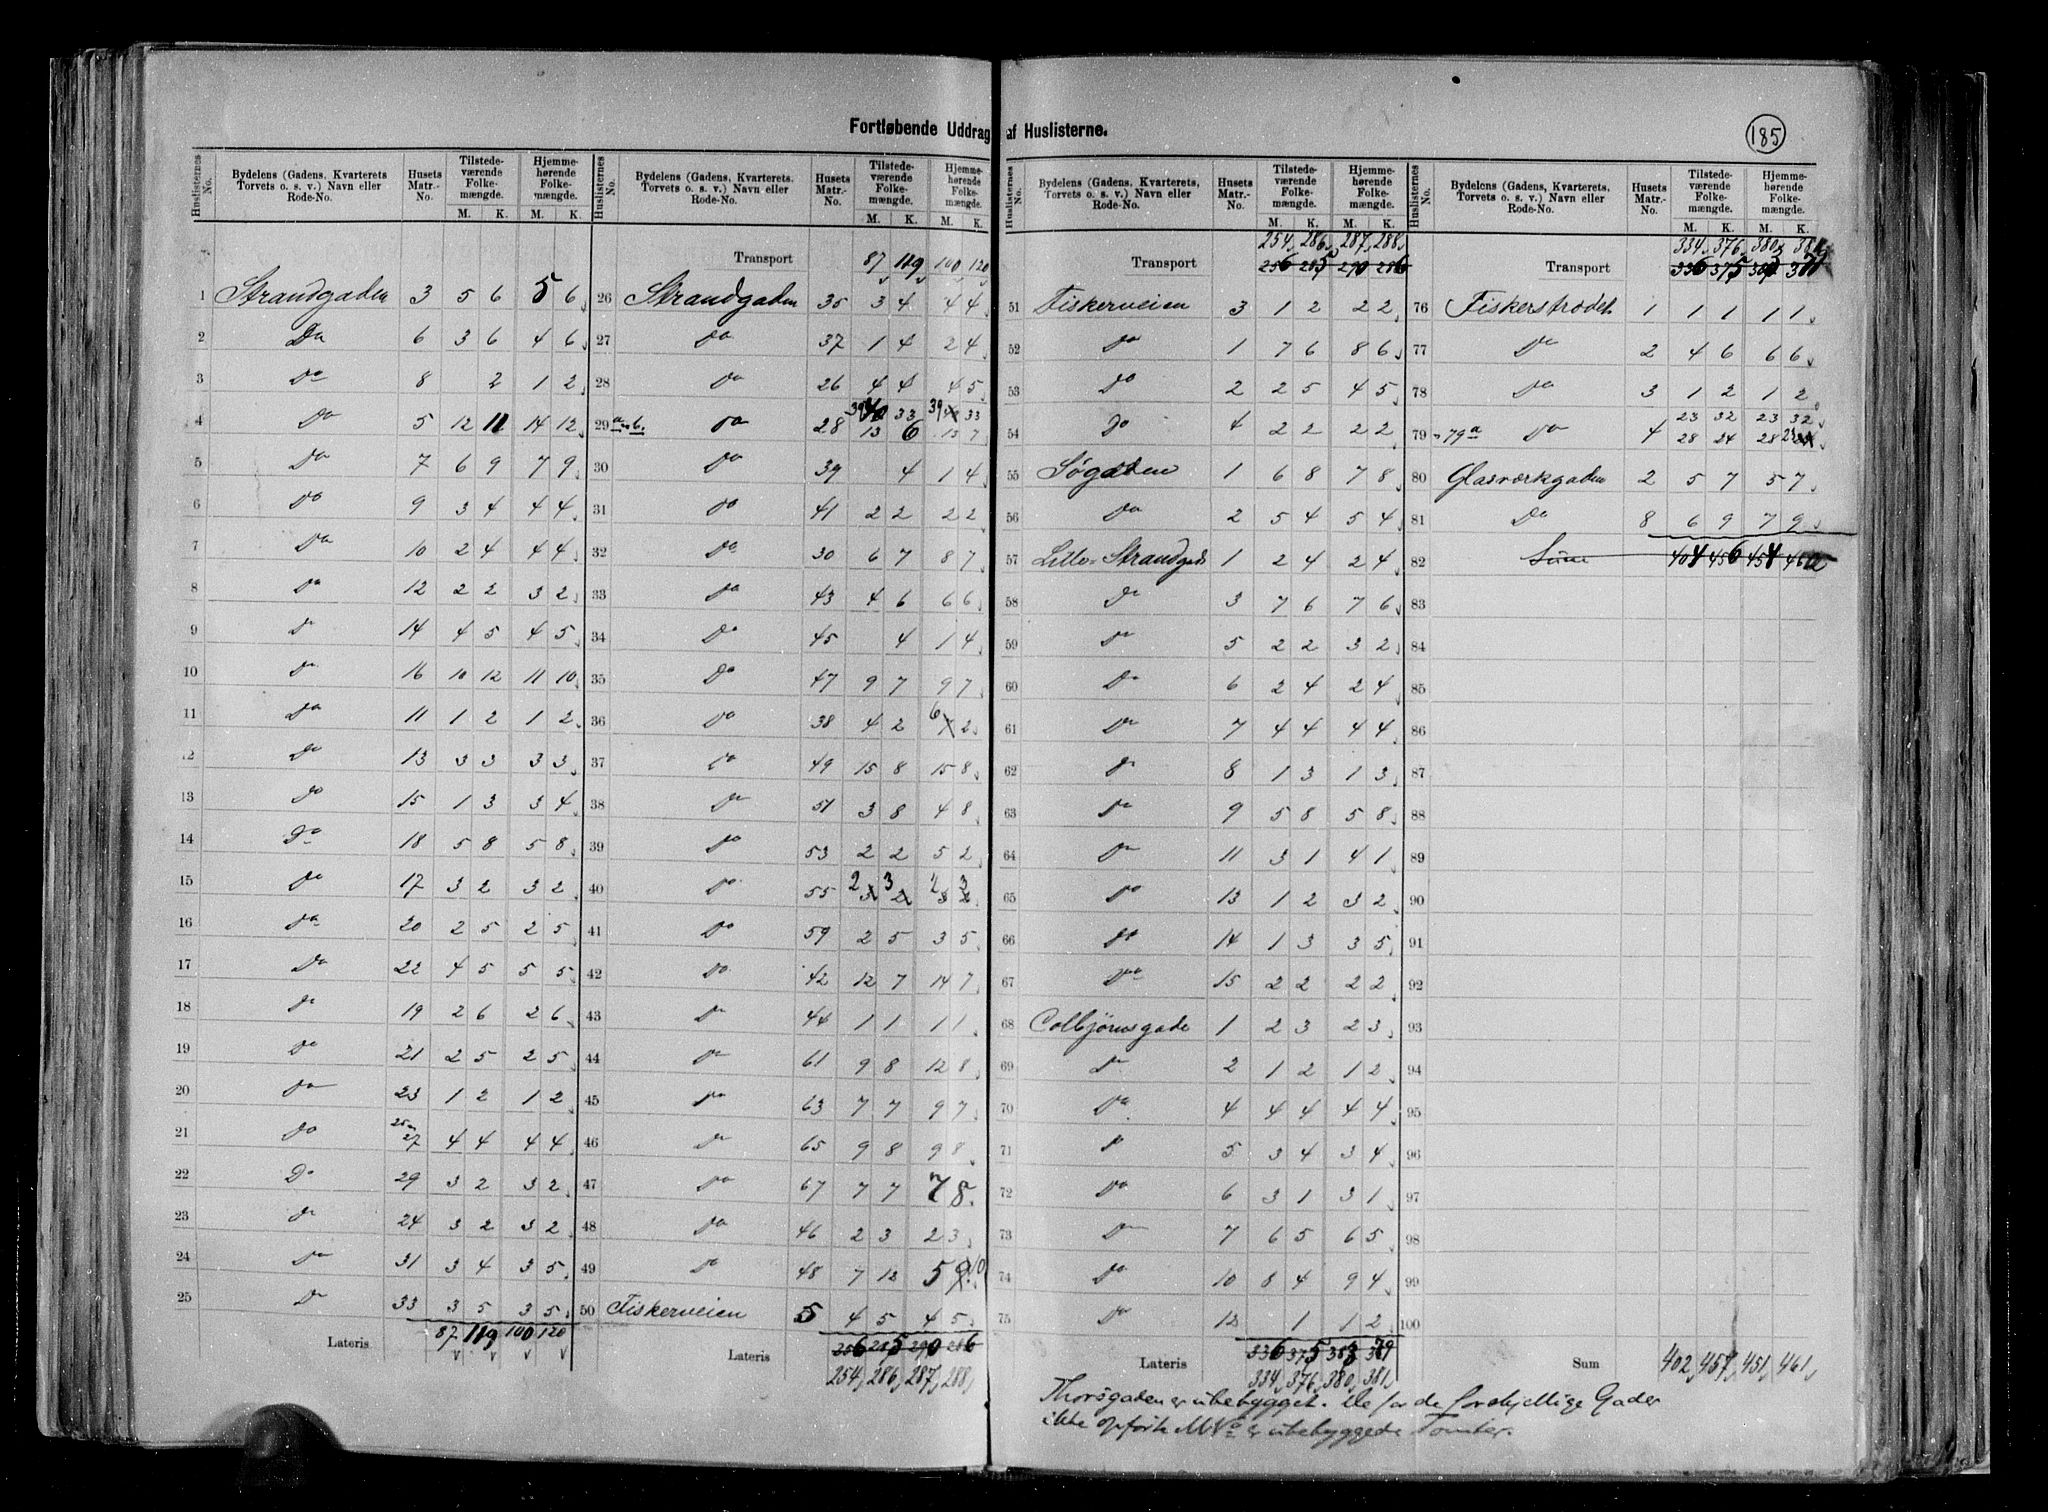 Fortløbende Uddrag af Huslisterne.
185
Huslisternes No. | Bydelens (Gadens, Kvarterets, Torvets o. s. v.) Navn eller Rode-No. | Husets Matr.-No. | Tilstedeværende Folkemængde. M. K. | Hjemmehørende Folkemængde. M. K.
1 Strandgaden 3 5 6 5 6
2 Do 6 3 6 4 6
3 Do 8 2 1 2
4 Do 5 12 11 14 12
5 Do 7 6 9 7 9
6 Do 9 3 4 4 4
7 Do 10 2 4 4 4
8 Do 12 2 2 3 2
9 Do 14 4 5 4 5
10 Do 16 10 12 11 10
11 Do 11 1 2 1 2
12 Do 13 3 3 3 3
13 Do 15 1 3 3 4
14 Do 18 5 8 5 8
15 Do 17 3 2 3 2
16 Do 20 2 5 2 5
17 Do 22 4 5 5 5
18 Do 19 2 6 2 6
19 Do 21 2 5 2 5
20 Do 23 1 2 1 2
21 Do 25 27 4 4 4 4
22 Do 29 3 2 3 2
23 Do 24 3 2 3 2
24 Do 31 3 4 3 5
25 Do 33 3 5 3 5
Lateris 87 119 100 120
Huslisternes No. | Bydelens (Gadens, Kvarterets, Torvets o. s. v.) Navn eller Rode-No. | Husets Matr.-No. | Tilstedeværende Folkemængde. M. K. | Hjemmehørende Folkemængde. M. K.
Transport 87 119 100 120
26 Strandgaden 35 3 4 4 4
27 Do 37 1 4 2 4
28 Do 26 4 4 4 5
39 33 39 33
29 a b. Do 28 13 6 13 7
30 Do 39 4 1 4
31 Do 41 2 2 2 2
32 Do 30 6 7 8 7
33 Do 43 4 6 6 6
34 Do 45 4 1 4
35 Do 47 9 7 9 7
36 Do 38 4 2 6 2
37 Do 49 15 8 15 8
38 Do 51 3 8 4 8
39 Do 53 2 2 5 2
40 Do 55 2 3 2 3
41 Do 59 2 5 3 5
42 Do 42 12 7 14 7
43 Do 44 1 1 1 1
44 Do 61 9 8 12 8
45 Do 63 7 7 9 7
46 Do 65 9 8 9 8
47 Do 67 7 7 7 8
48 Do 46 2 3 2 3
49 Do 48 7 12 5 10
50 Fiskerveien 5 4 5 4 5
Lateris 256 285 290 286
254 286 287 288
Huslisternes No. | Bydelens (Gadens, Kvarterets, Torvets o. s. v.) Navn eller Rode-No. | Husets Matr.-No. | Tilstedeværende Folkemængde. M. K. | Hjemmehørende Folkemængde. M. K.
254 286 287 288
Transport 256 285 290 286
51 Fiskerveien 3 1 2 2 2
52 Do 1 7 6 8 6
53 Do 2 2 5 4 5
54 Do 4 2 2 2 2
55 Søgaden 1 6 8 7 8
56 Do 2 5 4 5 4
57 Lille Strandgade 1 2 4 2 4
58 Do 3 7 6 7 6
59 Do 5 2 2 3 2
60 Do 6 2 4 2 4
61 Do 7 4 4 4 4
62 Do 8 1 3 1 3
63 Do 9 5 8 5 8
64 Do 11 3 1 4 1
65 Do 13 1 2 3 2
66 Do 14 1 3 3 5
67 Do 15 2 2 2 2
68 Colbjørnsgade 1 2 3 2 3
69 Do 2 1 2 1 2
70 Do 4 4 4 4 4
71 Do 5 3 4 3 4
72 Do 6 3 1 3 1
73 Do 7 6 5 6 5
74 Do 10 8 4 9 4
75 Do 12 1 1 2
Lateris 336 375 383 379
334 376 380 381
Huslisternes No. | Bydelens (Gadens, Kvarterets, Torvets o. s. v.) Navn eller Rode-No. | Husets Matr.-No. | Tilstedeværende Folkemængde. M. K. | Hjemmehørende Folkemængde. M. K.
334 376 380 381
Transport 336 375 383 379
76 Fiskerstrædet 1 1 1 1 1
77 Do 2 4 6 6 6
78 Do 3 1 2 1 2
23 32 23 32
79 79a Do 4 28 24 28 23
80 Glasværkgaden 2 5 7 5 7
81 Do 8 6 9 7 9
82 Sum 404 456 454 460
83
84
85
86
87
88
89
90
91
92
93
94
95
96
97
98
99
100
Sum 402 457 451 461
Thorsgaden er ubebygget. De for de forskjellige Gader
ikke opførte M No er ubebyggede Tomter.